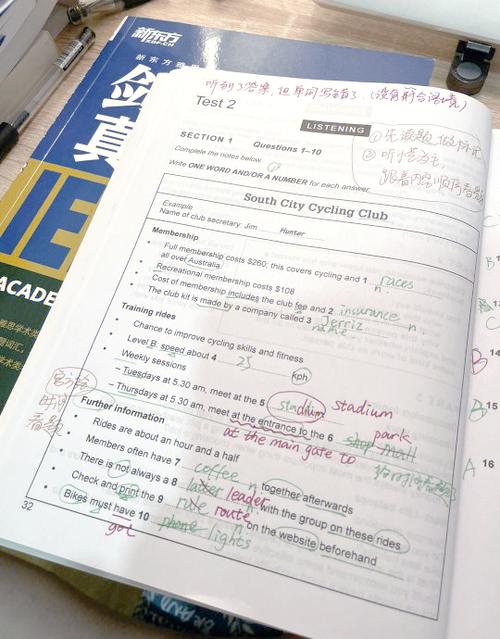 新东方
XDF.CN
剑
真
IE
ACADE
听到了答案,但单词写错了.(没有符合语境)
Test 2
LISTENING
① 先读题,做标记
② 听
SECTION 1 Questions 1–10
Complete the notes below.
Write ONE WORD AND/OR A NUMBER for each answer.
South City Cycling Club
Example
Name of club secretary: Jim Hunter
Membership
Full membership costs $260; this covers cycling and 1 races
all over Australia
n.
Recreational membership costs $108
Cost of membership includes the club fee and 2 insurance n.
The club kit is made by a company called 3 Jerriz
name
Training rides
Chance to improve cycling skills and fitness
Level B: speed about 4 25 kph
Weekly sessions
– Tuesdays at 5.30 am, meet at the 5 stadium stadium
– Thursdays at 5.30 am, meet at the entrance to the 6 shop mall park
at the main gate to
时间
看题
Further information
Rides are about an hour and a half
Members often have 7 coffee n together afterwards
There is not always a 8 leader with the group on these rides
Check and print the 9 rule route on the website beforehand
Bikes must have 10 phone lights
got
32
14
15
16
B
A